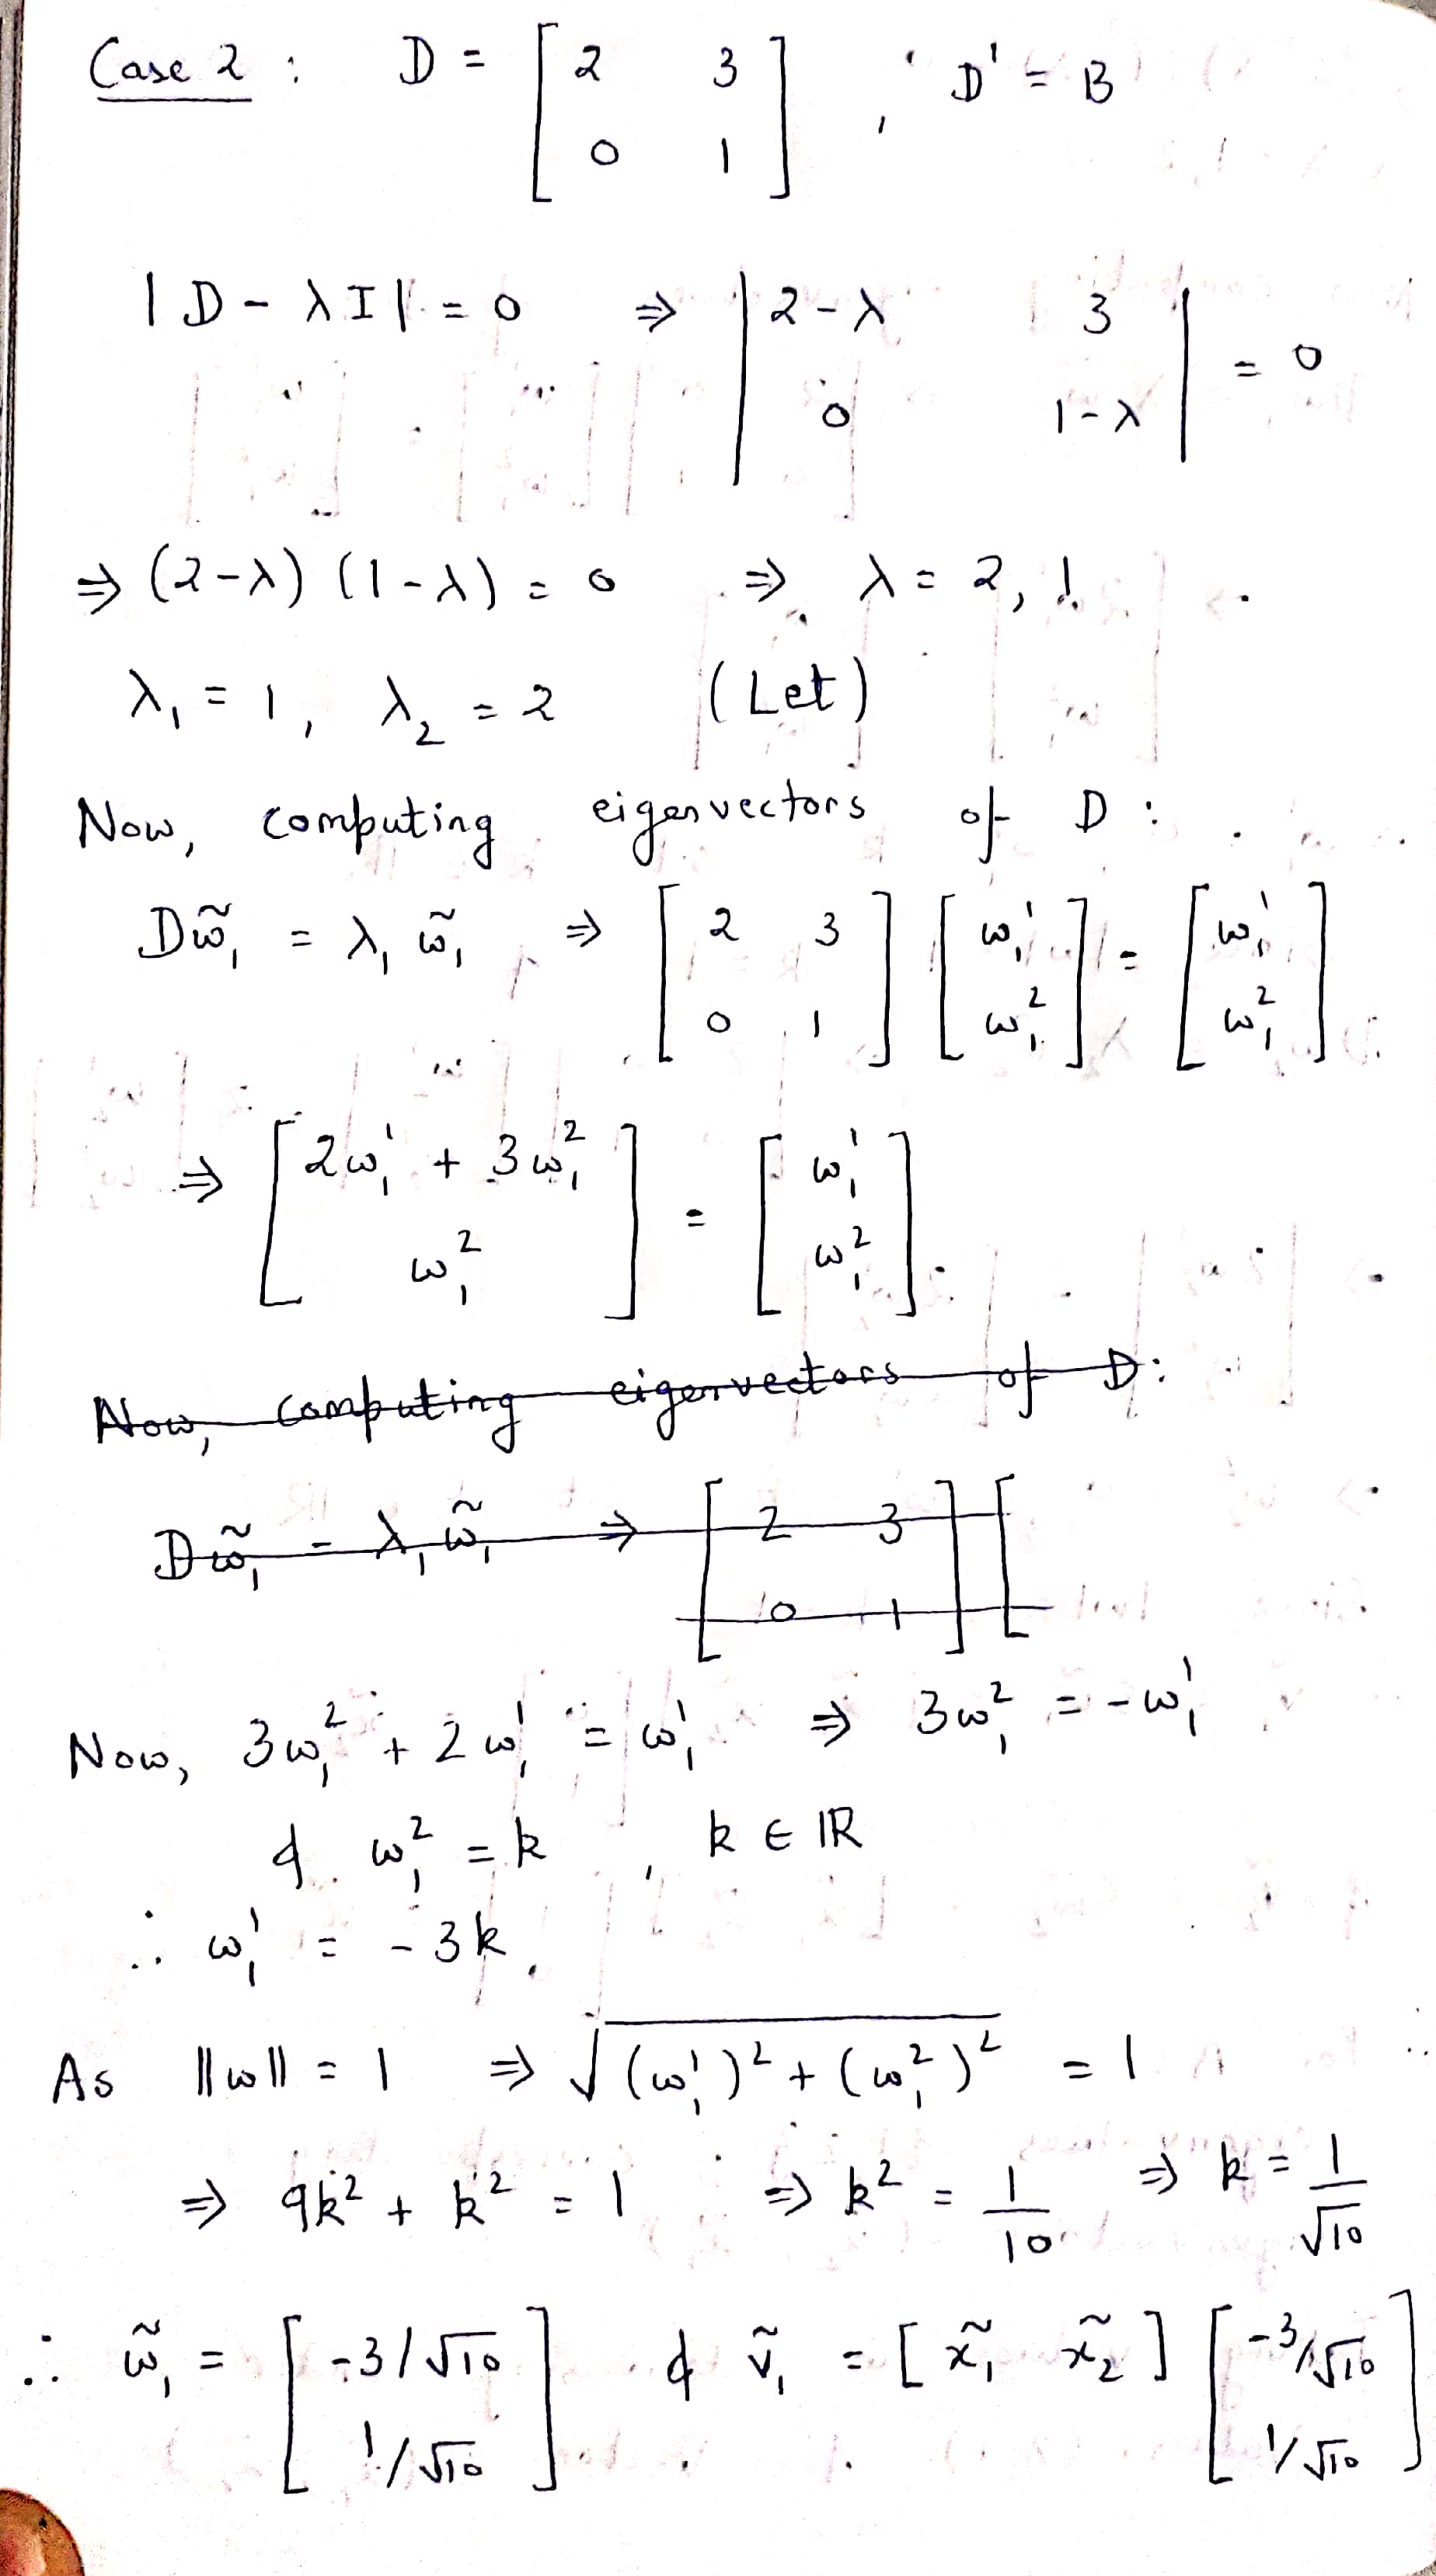 Case 2 : D = [ 2 3 ; 0 1 ] , D' = B
|D - λI| = 0 ⇒ | 2-λ 3 ; 0 1-λ | = 0
⇒ (2-λ) (1-λ) = 0 ⇒ λ = 2, 1.
λ₁ = 1, λ₂ = 2 (Let)
Now, computing eigenvectors of D :
Dω̃₁ = λ₁ ω̃₁ ⇒ [ 2 3 ; 0 1 ] [ ω₁¹ ; ω₁² ] = [ ω₁¹ ; ω₁² ]
⇒ [ 2ω₁¹ + 3ω₁² ; ω₁² ] = [ ω₁¹ ; ω₁² ].
Now, computing eigenvectors of D:
Dω̃₁ = λ₁ω̃₁ ⇒ [ 2 3 ; 0 1 ] [
Now, 3ω₁² + 2ω₁¹ = ω₁¹ ⇒ 3ω₁² = -ω₁¹
& ω₁² = k , k ∈ ℝ
∴ ω₁¹ = -3k.
As ||ω|| = 1 ⇒ √((ω₁¹)² + (ω₁²)²) = 1
⇒ 9k² + k² = 1 ⇒ k² = 1/10 ⇒ k = 1/√10
∴ ω̃₁ = [ -3/√10 ; 1/√10 ] & ṽ₁ = [ x̃₁ x̃₂ ] [ -3/√10 ; 1/√10 ]